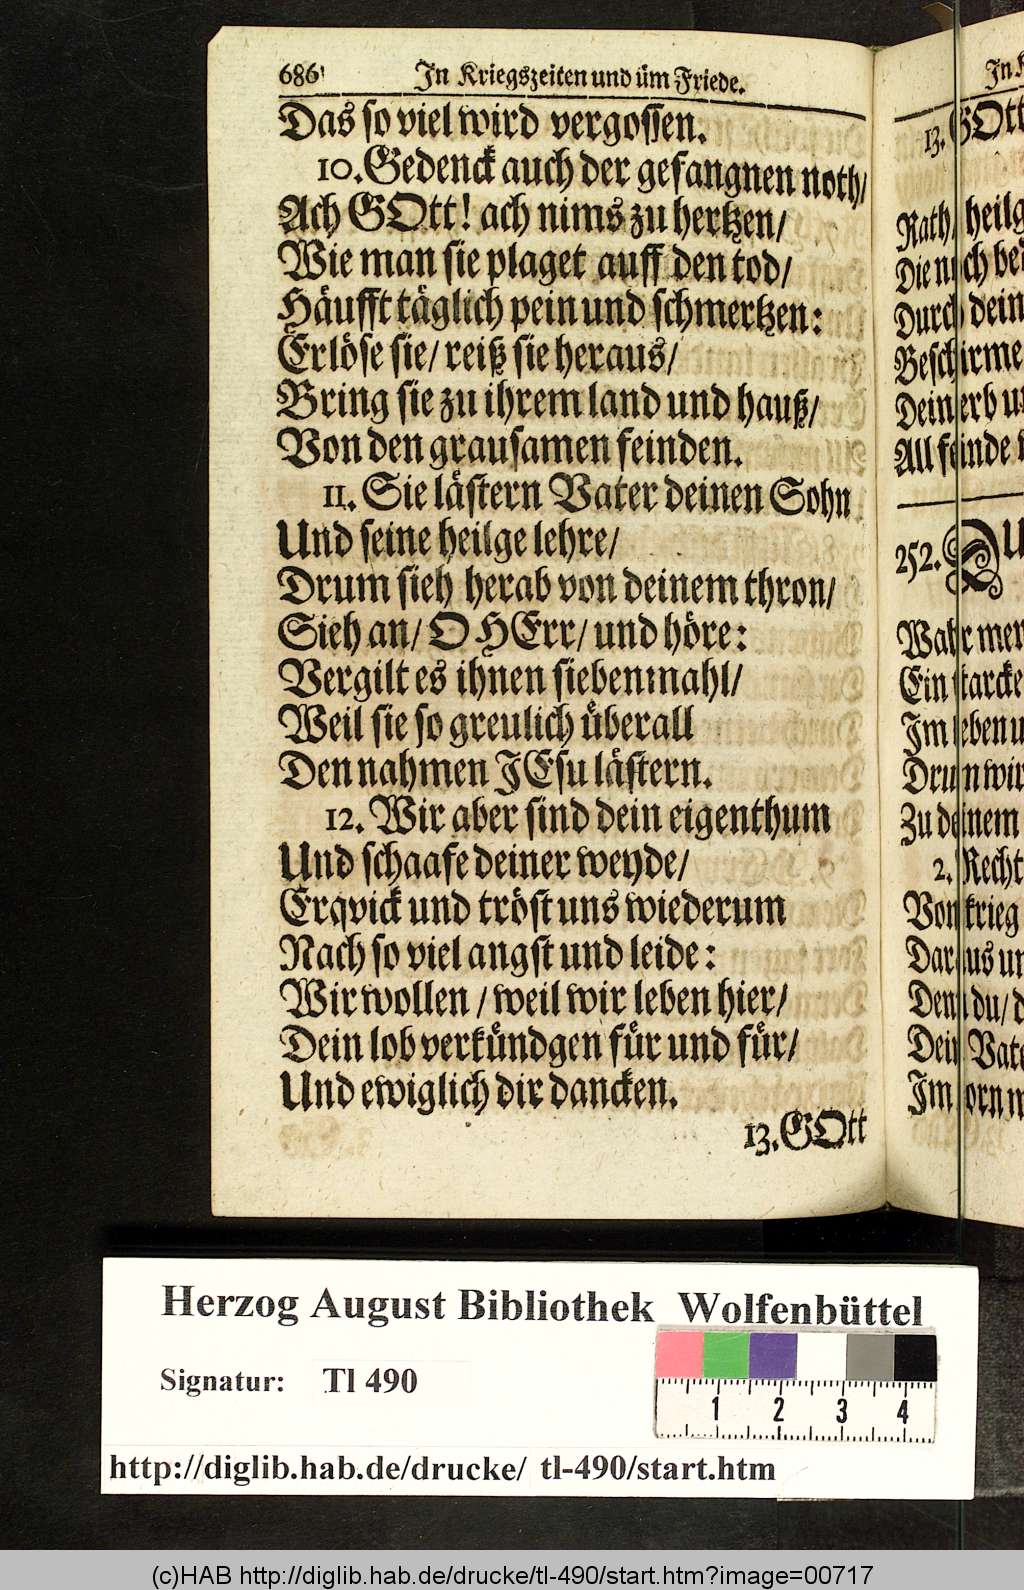 686
In Kriegszeiten und üm Friede.
Das so viel wird vergossen.
10. Gedenck auch der gefangnen noth/
Ach GOtt! ach nims zu hertzen/
Wie man sie plaget auff den tod/
Häufft täglich pein und schmertzen:
Erlöse sie/ reiß sie heraus/
Bring sie zu ihrem land und hauß/
Von den grausamen feinden.
11. Sie lästern Vater deinen Sohn
Und seine heilge lehre/
Drum sieh herab von deinem thron/
Sieh an/ O HErr/ und höre:
Vergilt es ihnen siebenmahl/
Weil sie so greulich überall
Den nahmen JEsu lästern.
12. Wir aber sind dein eigenthum
Und schaafe deiner weyde/
Erqvick und tröst uns wiederum
Nach so viel angst und leide:
Wir wollen / weil wir leben hier/
Dein lob verkündgen für und für/
Und ewiglich dir dancken.
13. GOtt
In
13. GOtt
Rath/ heilg
Die n ch
Durch dein
Beschirme
Dein erb
All feinde
252.
Wahr
Ein starcke
Im leben
Drum wir
Zu deinem
2. Recht
Von krieg
Daraus
Denn du/
Dein Vate
Im zorn
Herzog August Bibliothek Wolfenbüttel
Signatur: Tl 490
1 2 3 4
http://diglib.hab.de/drucke/ tl-490/start.htm
(c)HAB http://diglib.hab.de/drucke/tl-490/start.htm?image=00717